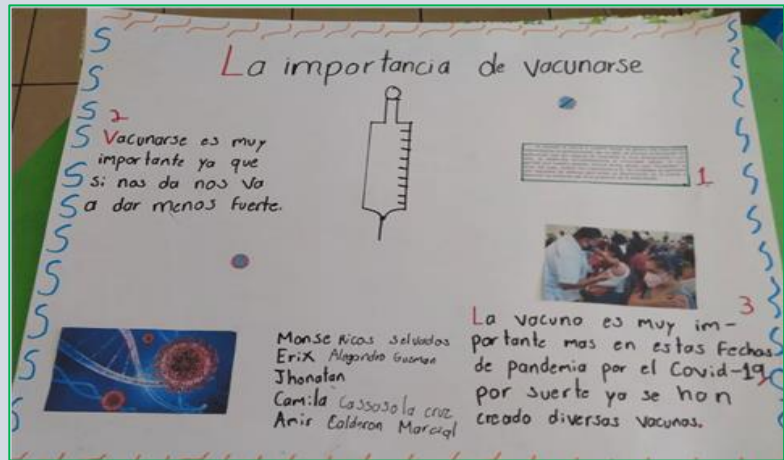 La importancia de vacunarse
1
2
Vacunarse es muy
importante ya que
si nos da nos va
a dar menos fuerte.
3
La vacuna es muy im-
portante mas en estas fechas
de pandemia por el Covid-19,
por suerte ya se han
creado diversas vacunas.
Monse Ricas Selvados
Erix Alegandro Gusman
Jhonatan
Camila Cassosola cruz
Amir Calderon Marcial